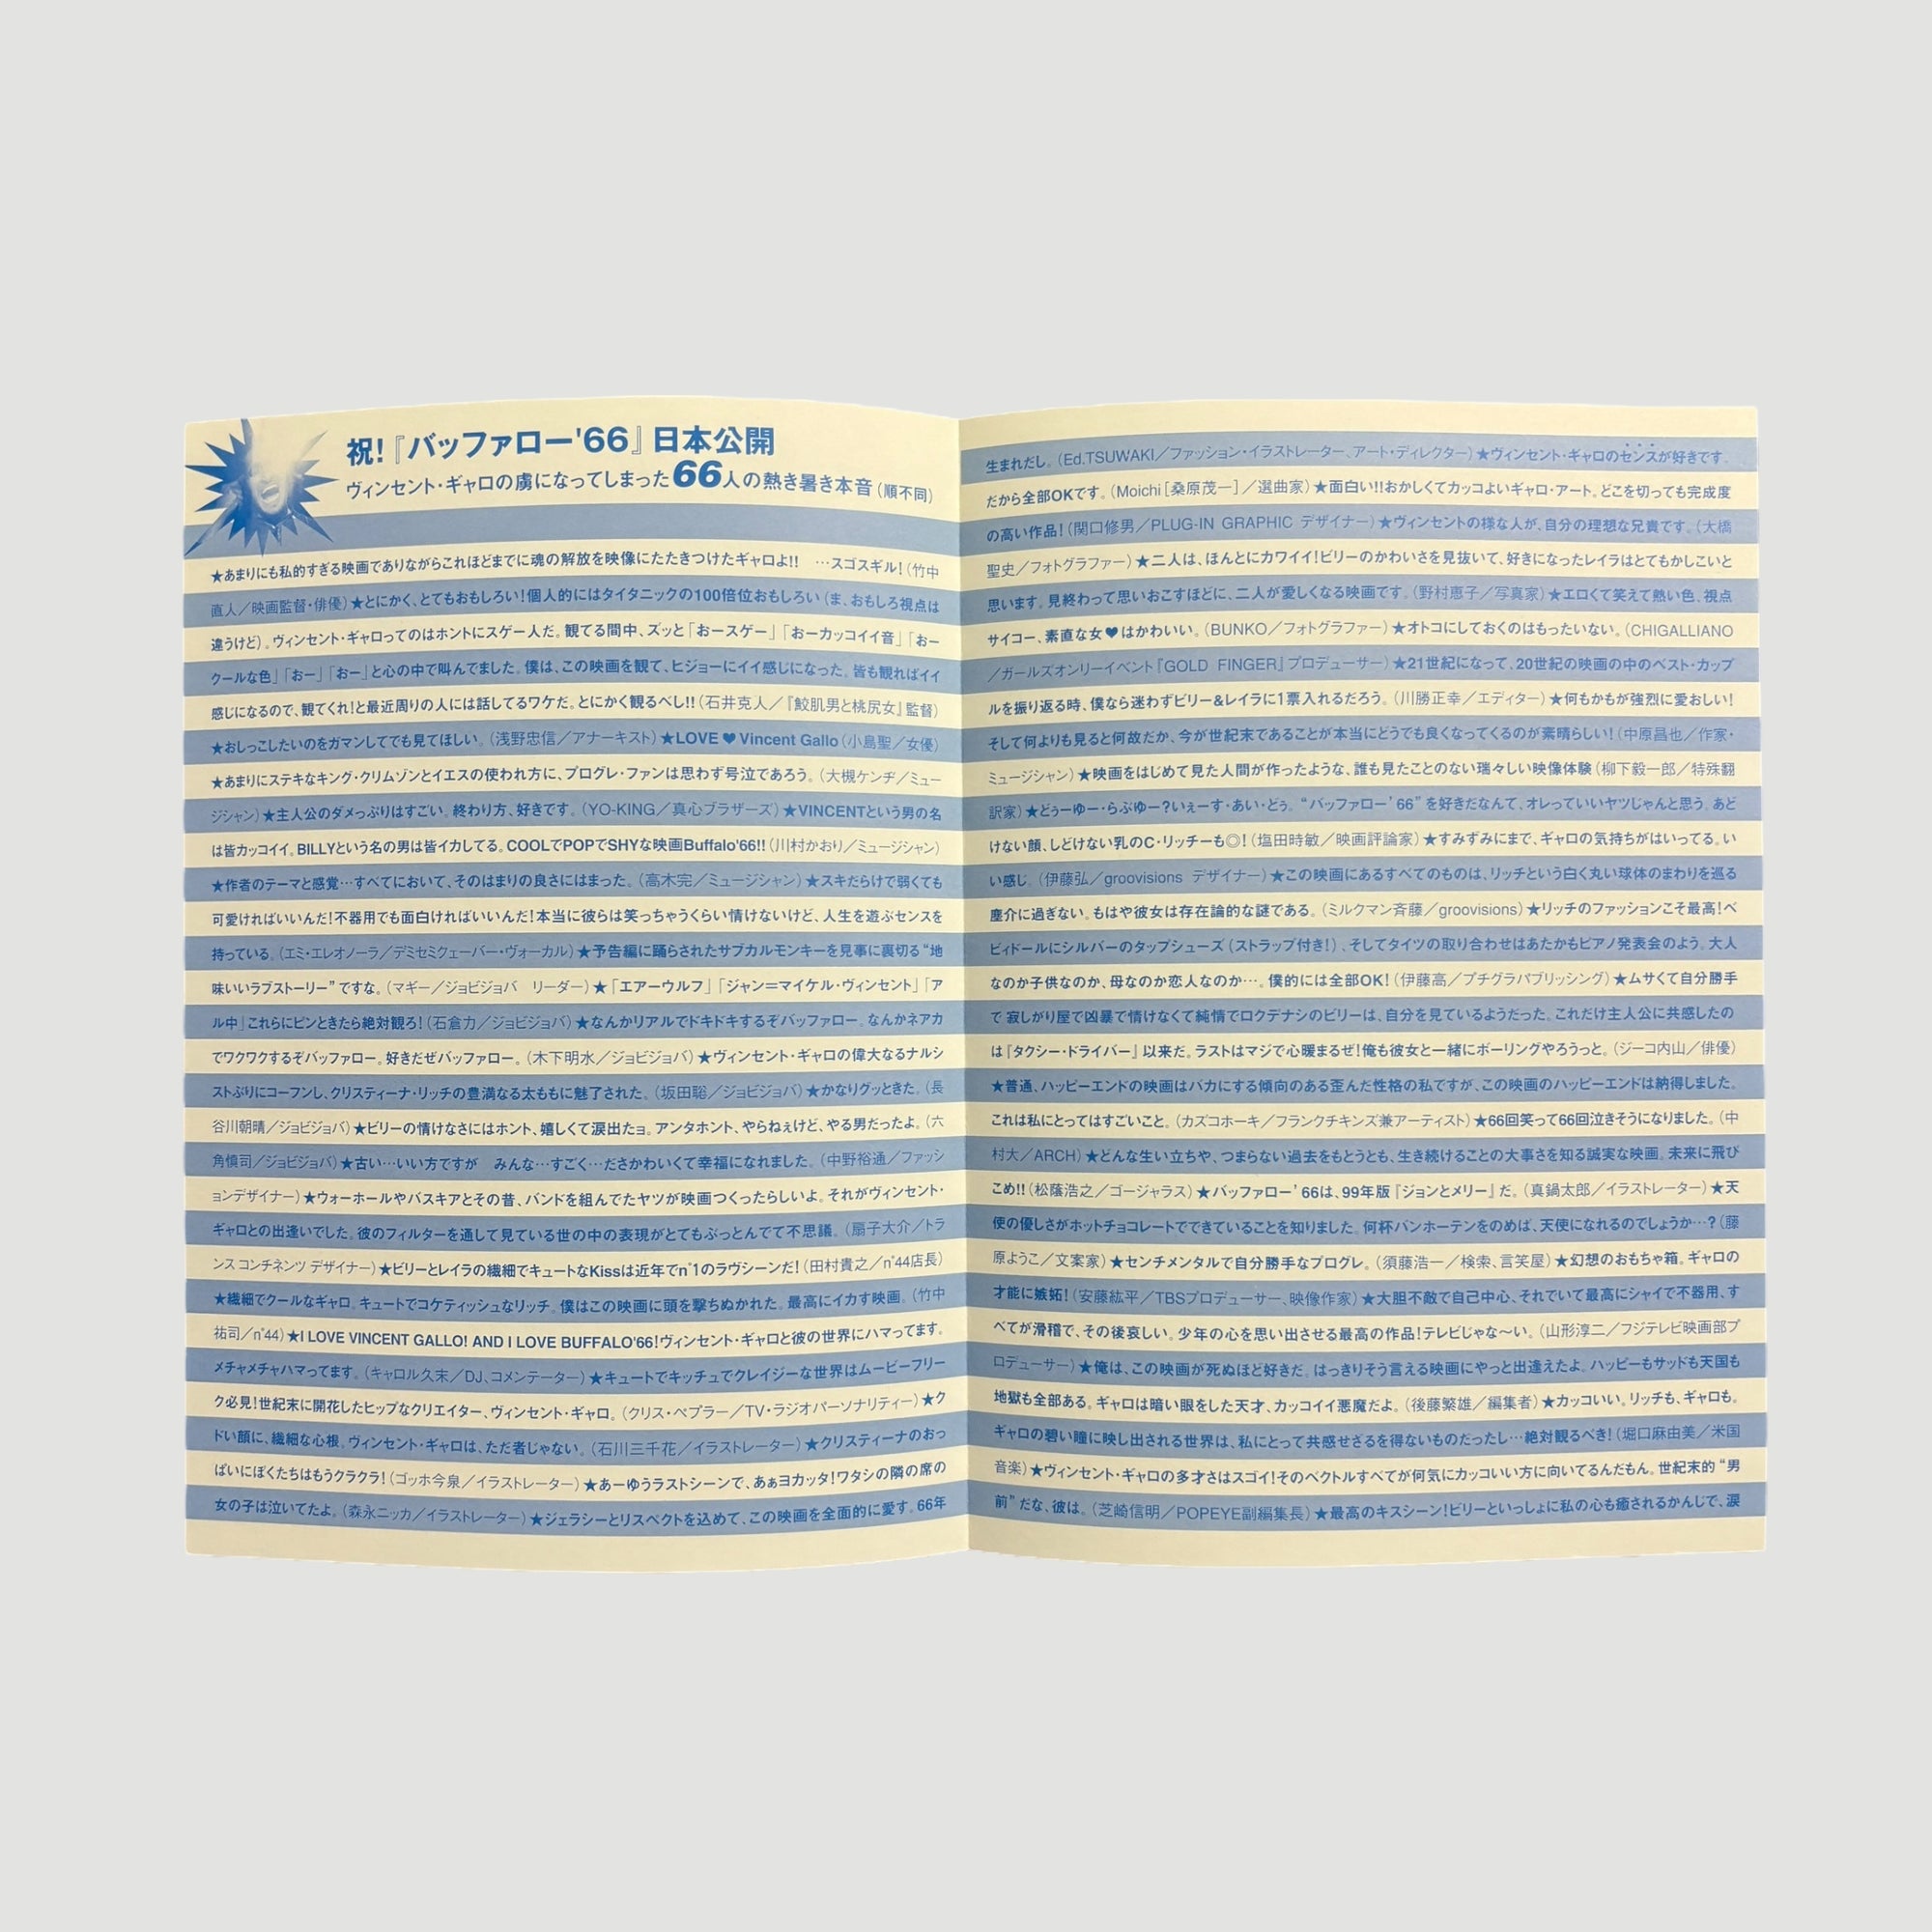 祝!『バッファロー'66』日本公開
ヴィンセント・ギャロの虜になってしまった66人の熱き暑き本音(順不同)
★あまりにも私的すぎる映画でありながらこれほどまでに魂の解放を映像にたたきつけたギャロよ!!　…スゴスギル!(竹中
直人／映画監督・俳優)★とにかく、とてもおもしろい!個人的にはタイタニックの100倍位おもしろい(ま、おもしろ視点は
違うけど)。ヴィンセント・ギャロってのはホントにスゲー人だ。観てる間中、ズッと「おースゲー」「おーカッコイイ音」「おー
クールな色」「おー」「おー」と心の中で叫んでました。僕は、この映画を観て、ヒジョーにイイ感じになった。皆も観ればイイ
感じになるので、観てくれ!と最近周りの人には話してるワケだ。とにかく観るべし!!(石井克人／『鮫肌男と桃尻女』監督)
★おしっこしたいのをガマンしてでも見てほしい。(浅野忠信／アナーキスト)★LOVE♥Vincent Gallo(小島聖／女優)
★あまりにステキなキング・クリムゾンとイエスの使われ方に、プログレ・ファンは思わず号泣であろう。(大槻ケンヂ／ミュー
ジシャン)★主人公のダメっぷりはすごい。終わり方、好きです。(YO-KING／真心ブラザーズ)★VINCENTという男の名
は皆カッコイイ。BILLYという名の男は皆イカしてる。COOLでPOPでSHYな映画Buffalo'66!!(川村かおり／ミュージシャン)
★作者のテーマと感覚…すべてにおいて、そのはまりの良さにはまった。(高木完／ミュージシャン)★スキだらけで弱くても
可愛ければいいんだ!不器用でも面白ければいいんだ!本当に彼らは笑っちゃうくらい情けないけど、人生を遊ぶセンスを
持っている。(エミ・エレオノーラ／デミセミクェーバー・ヴォーカル)★予告編に踊らされたサブカルモンキーを見事に裏切る“地
味いいラブストーリー”ですな。(マギー／ジョビジョバ　リーダー)★「エアーウルフ」「ジャン=マイケル・ヴィンセント」「ア
ル中」これらにピンときたら絶対観ろ!(石倉力／ジョビジョバ)★なんかリアルでドキドキするぞバッファロー。なんかネアカ
でワクワクするぞバッファロー。好きだぜバッファロー。(木下明水／ジョビジョバ)★ヴィンセント・ギャロの偉大なるナルシ
ストぶりにコーフンし、クリスティーナ・リッチの豊満なる太ももに魅了された。(坂田聡／ジョビジョバ)★かなりグッときた。(長
谷川朝晴／ジョビジョバ)★ビリーの情けなさにはホント、嬉しくて涙出たョ。アンタホント、やらねぇけど、やる男だったよ。(六
角慎司／ジョビジョバ)★古い…いい方ですが　みんな…すごく…ださかわいくて幸福になれました。(中野裕通／ファッシ
ョンデザイナー)★ウォーホールやバスキアとその昔、バンドを組んでたヤツが映画つくったらしいよ。それがヴィンセント・
ギャロとの出逢いでした。彼のフィルターを通して見ている世の中の表現がとてもぶっとんでて不思議。(扇子大介／トラ
ンスコンチネンツ デザイナー)★ビリーとレイラの繊細でキュートなKissは近年でn°1のラヴシーンだ!(田村貴之／n°44店長)
★繊細でクールなギャロ。キュートでコケティッシュなリッチ。僕はこの映画に頭を撃ちぬかれた。最高にイカす映画。(竹中
祐司／n°44)★I LOVE VINCENT GALLO! AND I LOVE BUFFALO'66!ヴィンセント・ギャロと彼の世界にハマってます。
メチャメチャハマってます。(キャロル久末／DJ、コメンテーター)★キュートでキッチュでクレイジーな世界はムービーフリー
ク必見!世紀末に開花したヒップなクリエイター、ヴィンセント・ギャロ。(クリス・ペプラー／TV・ラジオパーソナリティー)★ク
ドい顔に、繊細な心根。ヴィンセント・ギャロは、ただ者じゃない。(石川三千花／イラストレーター)★クリスティーナのおっ
ぱいにぼくたちはもうクラクラ!(ゴッホ今泉／イラストレーター)★あーゆうラストシーンで、あぁヨカッタ!ワタシの隣の席の
女の子は泣いてたよ。(森永ニッカ／イラストレーター)★ジェラシーとリスペクトを込めて、この映画を全面的に愛す。66年
生まれだし。(Ed.TSUWAKI／ファッション・イラストレーター、アート・ディレクター)★ヴィンセント・ギャロのセンスが好きです。
だから全部OKです。(Moichi[桑原茂一]／選曲家)★面白い!!おかしくてカッコよいギャロ・アート。どこを切っても完成度
の高い作品!(関口修男／PLUG-IN GRAPHIC デザイナー)★ヴィンセントの様な人が、自分の理想な兄貴です。(大橋
聖史／フォトグラファー)★二人は、ほんとにカワイイ!ビリーのかわいさを見抜いて、好きになったレイラはとてもかしこいと
思います。見終わって思いおこすほどに、二人が愛しくなる映画です。(野村恵子／写真家)★エロくて笑えて熱い色、視点
サイコー、素直な女♥はかわいい。(BUNKO／フォトグラファー)★オトコにしておくのはもったいない。(CHIGALLIANO
／ガールズオンリーイベント『GOLD FINGER』プロデューサー)★21世紀になって、20世紀の映画の中のベスト・カップ
ルを振り返る時、僕なら迷わずビリー&レイラに1票入れるだろう。(川勝正幸／エディター)★何もかもが強烈に愛おしい!
そして何よりも見ると何故だか、今が世紀末であることが本当にどうでも良くなってくるのが素晴らしい!(中原昌也／作家・
ミュージシャン)★映画をはじめて見た人間が作ったような、誰も見たことのない瑞々しい映像体験(柳下毅一郎／特殊翻
訳家)★どぅーゆー・らぶゆー?いぇーす・あい・どぅ。“バッファロー’66”を好きだなんて、オレっていいヤツじゃんと思う。あど
けない顔、しどけない乳のC・リッチーも◎!(塩田時敏／映画評論家)★すみずみにまで、ギャロの気持ちがはいってる。い
い感じ。(伊藤弘／groovisions デザイナー)★この映画にあるすべてのものは、リッチという白く丸い球体のまわりを巡る
塵介に過ぎない。もはや彼女は存在論的な謎である。(ミルクマン斉藤／groovisions)★リッチのファッションこそ最高!ベ
ビィドールにシルバーのタップシューズ(ストラップ付き!)、そしてタイツの取り合わせはあたかもピアノ発表会のよう。大人
なのか子供なのか、母なのか恋人なのか…。僕的には全部OK!(伊藤高／プチグラパブリッシング)★ムサくて自分勝手
で寂しがり屋で凶暴で情けなくて純情でロクデナシのビリーは、自分を見ているようだった。これだけ主人公に共感したの
は『タクシー・ドライバー』以来だ。ラストはマジで心暖まるぜ!俺も彼女と一緒にボーリングやろうっと。(ジーコ内山／俳優)
★普通、ハッピーエンドの映画はバカにする傾向のある歪んだ性格の私ですが、この映画のハッピーエンドは納得しました。
これは私にとってはすごいこと。(カズコホーキ／フランクチキンズ兼アーティスト)★66回笑って66回泣きそうになりました。(中
村大／ARCH)★どんな生い立ちや、つまらない過去をもとうとも、生き続けることの大事さを知る誠実な映画。未来に飛び
こめ!!(松蔭浩之／ゴージャラス)★バッファロー’66は、99年版『ジョンとメリー』だ。(真鍋太郎／イラストレーター)★天
使の優しさがホットチョコレートでできていることを知りました。何杯バンホーテンをのめば、天使になれるのでしょうか…?(藤
原ようこ／文案家)★センチメンタルで自分勝手なプログレ。(須藤浩一／検索、言笑屋)★幻想のおもちゃ箱。ギャロの
才能に嫉妬!(安藤紘平／TBSプロデューサー、映像作家)★大胆不敵で自己中心、それでいて最高にシャイで不器用、す
べてが滑稽で、その後哀しい。少年の心を思い出させる最高の作品!テレビじゃな〜い。(山形淳二／フジテレビ映画部プ
ロデューサー)★俺は、この映画が死ぬほど好きだ。はっきりそう言える映画にやっと出逢えたよ。ハッピーもサッドも天国も
地獄も全部ある。ギャロは暗い眼をした天才、カッコイイ悪魔だよ。(後藤繁雄／編集者)★カッコいい。リッチも、ギャロも。
ギャロの碧い瞳に映し出される世界は、私にとって共感せざるを得ないものだったし…絶対観るべき!(堀口麻由美／米国
音楽)★ヴィンセント・ギャロの多才さはスゴイ!そのベクトルすべてが何気にカッコいい方に向いてるんだもん。世紀末的“男
前”だな、彼は。(芝崎信明／POPEYE副編集長)★最高のキスシーン!ビリーといっしょに私の心も癒されるかんじで、涙